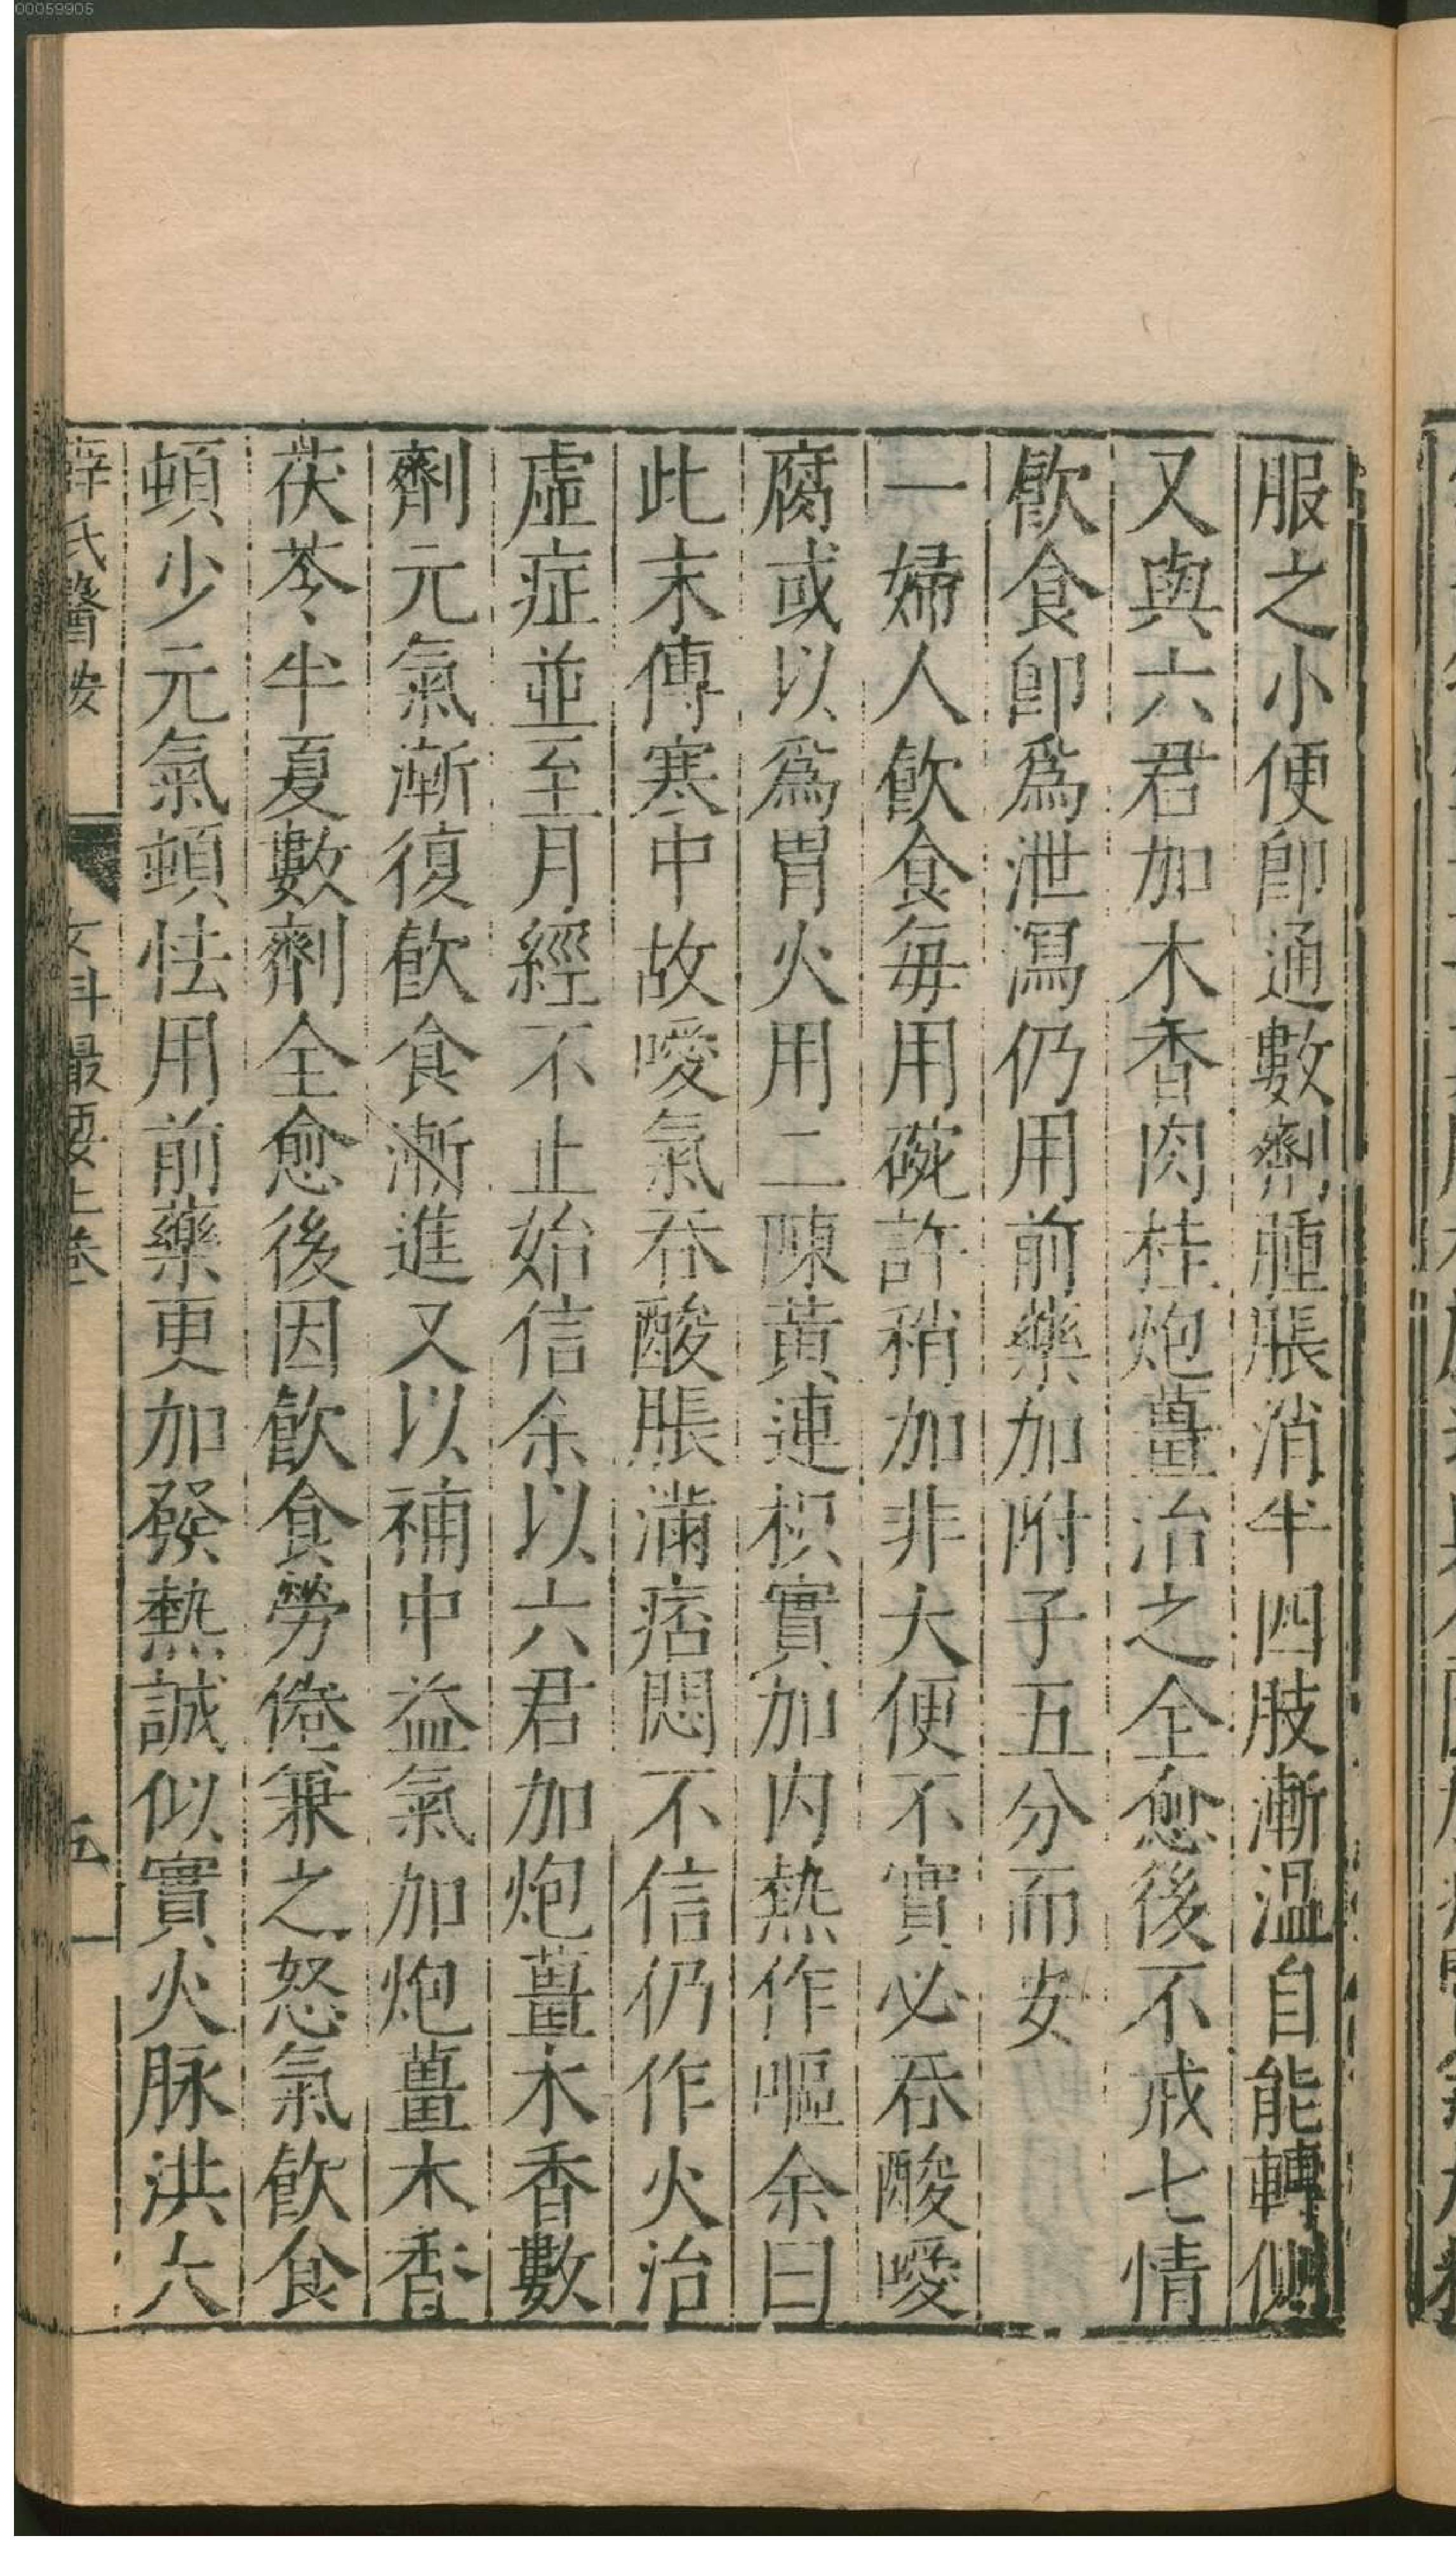 00059905
服之小便卽通數劑腫脹消半四肢漸溫自能轉側
又與六君加木香肉桂炮薑治之全愈後不戒七情
飮食卽爲泄瀉仍用前藥加附子五分而安
一婦人飮食每用碗許稍加非大便不實必吞酸噯
腐或以爲胃火用二陳黃連枳實加內熱作嘔余曰
此末傳寒中故噯氣吞酸脹滿痞悶不信仍作火治
虛症並至月經不止始信余以六君加炮薑木香數
劑元氣漸復飮食漸進又以補中益氣加炮薑木香
茯苓半夏數劑全愈後因飮食勞倦兼之怒氣飮食
頓少元氣頓怯用前藥更加發熱誠似實火脉洪大
薛氏醫按 女科撮要上卷 五